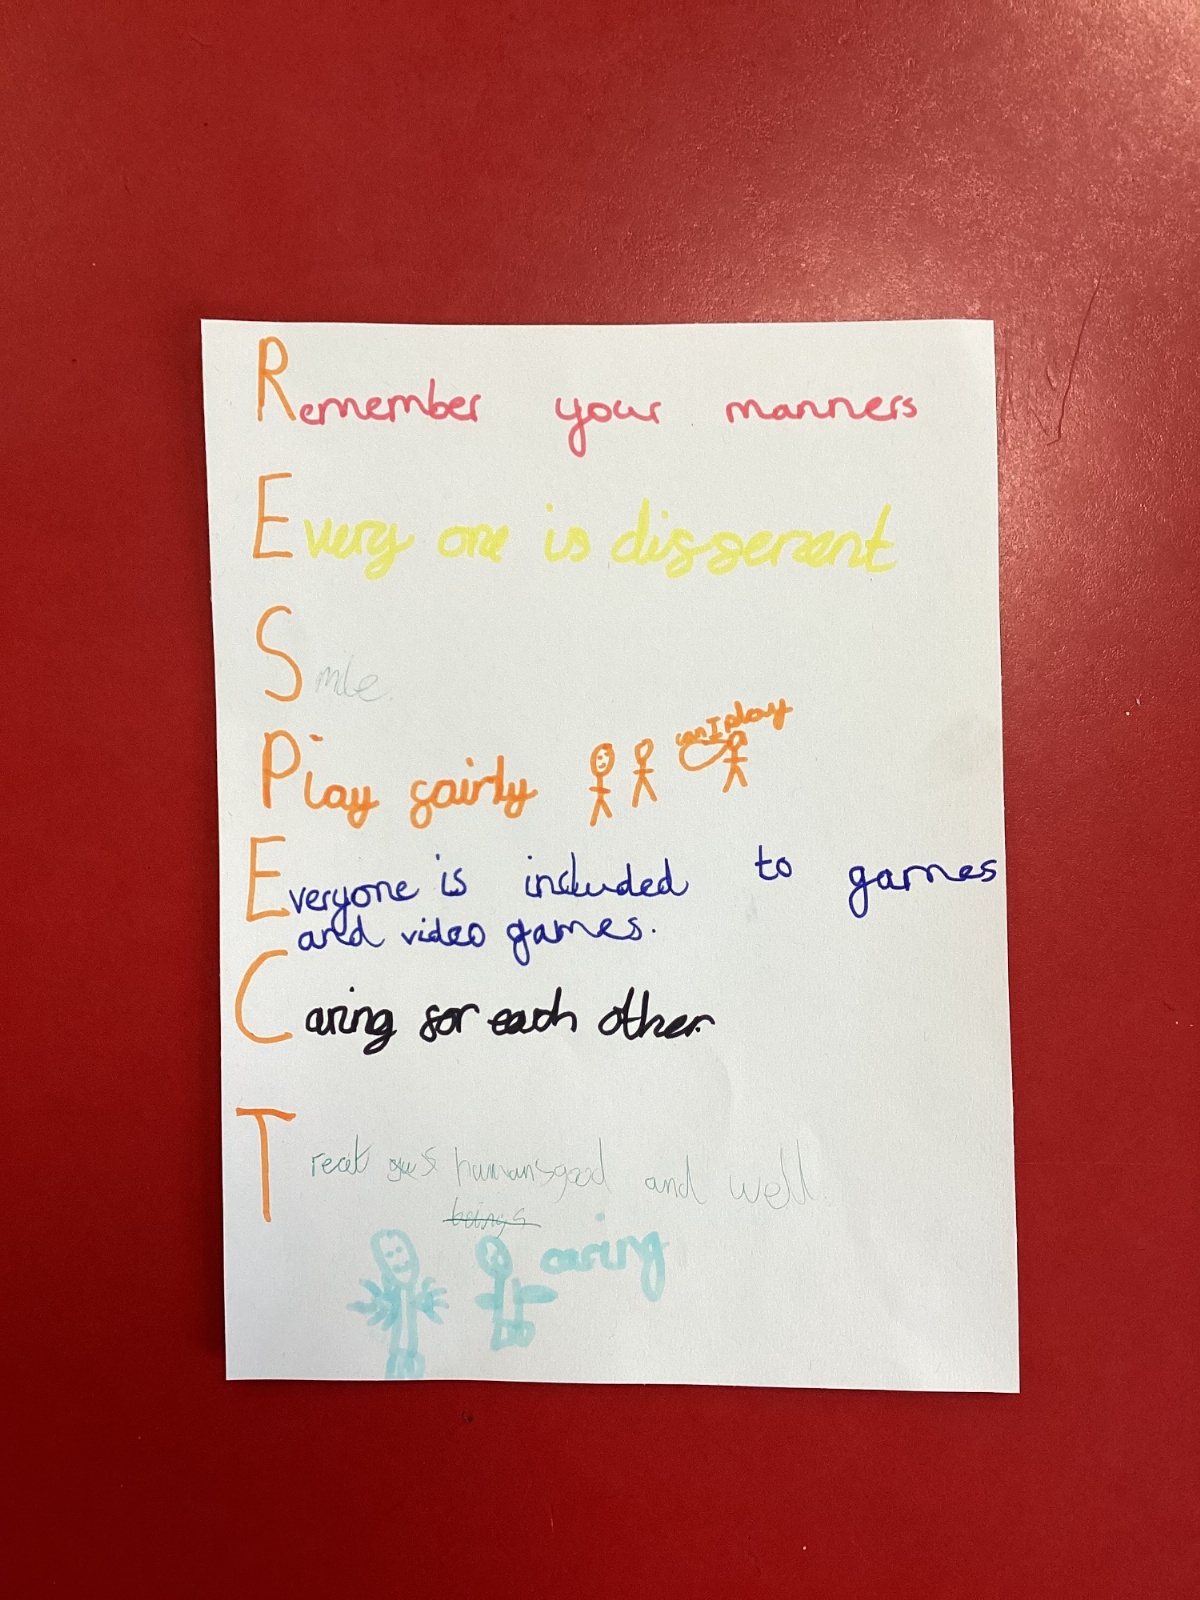 Remember your manners
Every one is differant
Smile.
can I play
Play fairly
Everyone is included to games
and video games.
Caring for each other.
Treat humans good and well.
beings
caring